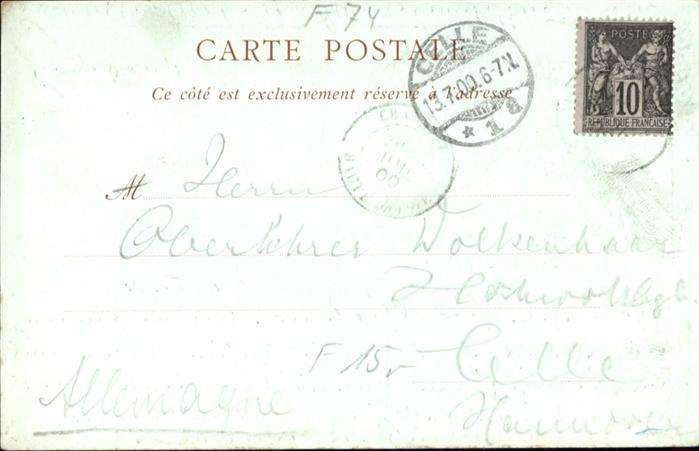 F 74
CARTE POSTALE
Ce côté est exclusivement réservé à l'adresse
CELLE
13.7.00.6-7N.
* 1 a
POSTE
10
REPUBLIQUE FRANÇAISE
M Herrn
Oberlehrer Wolkenhaar
F 15,- Celle
Allemagne
Hannover